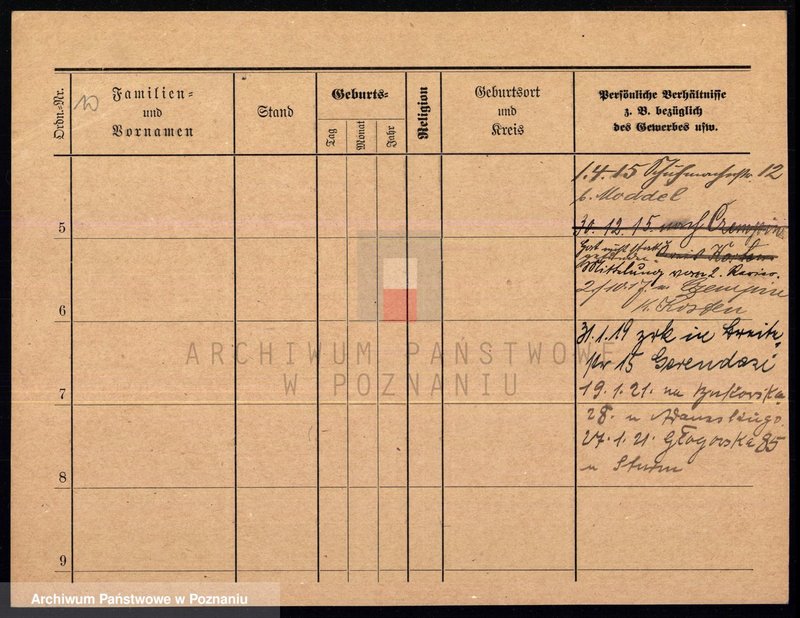 Ordn.-Nr.
Familien-
und
Vornamen
Stand
Geburts-
Tag
Monat
Jahr
Religion
Geburtsort
und
Kreis
Persönliche Verhältnisse
z. B. bezüglich
des Gewerbes usw.
1.4.15 Schuhmacherstr. 12
b. Moddel
5
30.12.15. nach
Hat nicht statt
gefunden
Mittelung vom 2. Revier.
6
n. Czempin
K. Kosten
31.1.19 zrk in Breite
str 15
7
19.1.21. na Bukowska
28. u
27.1.21. Głogowska 85
u Sturm
8
9
ARCHIWUM PAŃSTWOWE
W POZNANIU
Archiwum Państwowe w Poznaniu